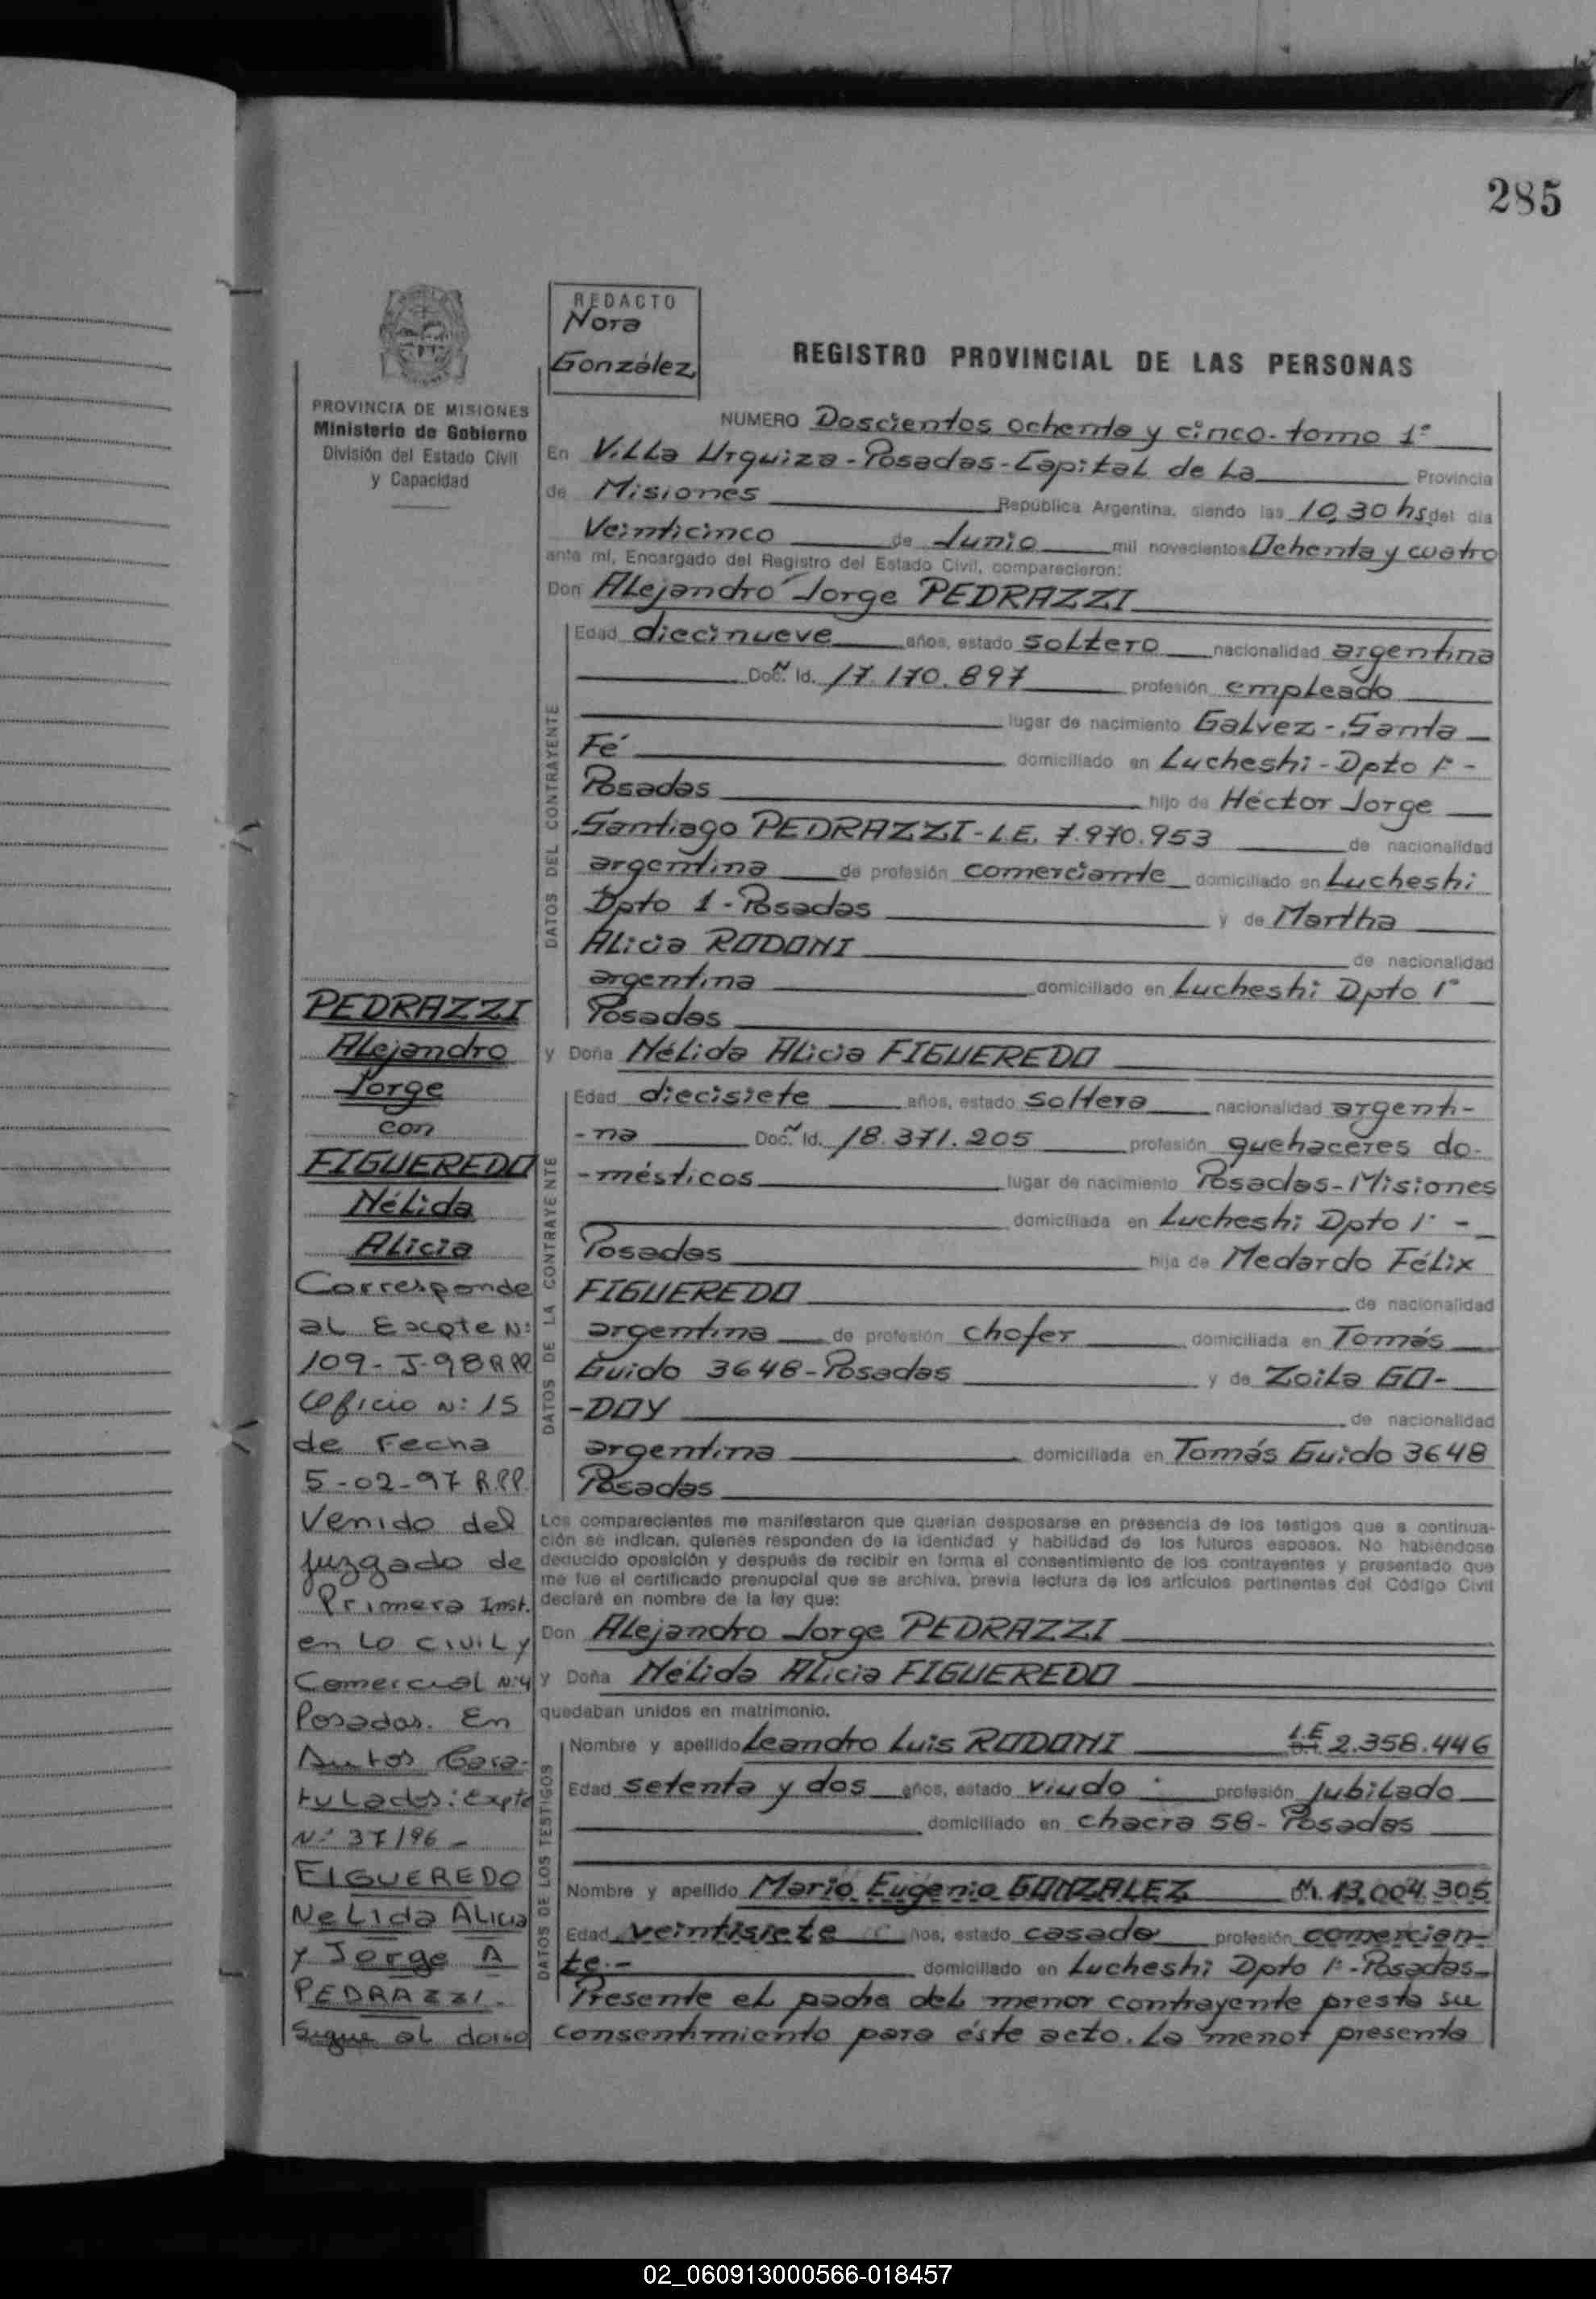 285
REDACTO
Nora
González
REGISTRO PROVINCIAL DE LAS PERSONAS
PROVINCIA DE MISIONES
Ministerio de Gobierno
División del Estado Civil
y Capacidad
NUMERO Doscientos ochenta y cinco. tomo 1º
En Villa Urquiza - Posadas - Capital de La Provincia
de Misiones República Argentina, siendo las 10,30 hs del día
Veinticinco de Junio mil novecientos Ochenta y cuatro
ante mí, Encargado del Registro del Estado Civil, comparecieron:
Don Alejandro Jorge PEDRAZZI
DATOS DEL CONTRAYENTE
Edad diecinueve años, estado soltero nacionalidad argentina
Doc. N Id. 17.170.897 profesión empleado
lugar de nacimiento Galvez - Santa
Fé domiciliado en Lucheshi - Dpto 1º -
Posadas hijo de Héctor Jorge
Santiago PEDRAZZI - L.E. 7.970.953 de nacionalidad
argentina de profesión comerciante domiciliado en Lucheshi
Dpto 1 - Posadas y de Martha
Alicia RODONI de nacionalidad
argentina domiciliado en Lucheshi Dpto 1º
Posadas
y Doña Nélida Alicia FIGUEREDO
DATOS DE LA CONTRAYENTE
Edad diecisiete años, estado soltera nacionalidad argenti-
-na Doc. N Id. 18.371.205 profesión quehaceres do-
-mésticos lugar de nacimiento Posadas - Misiones
domiciliada en Lucheshi Dpto 1º -
Posadas hija de Medardo Félix
FIGUEREDO de nacionalidad
argentina de profesión chofer domiciliada en Tomás
Guido 3648 - Posadas y de Zoila GO-
-DOY de nacionalidad
argentina domiciliada en Tomás Guido 3648
Posadas
Los comparecientes me manifestaron que querían desposarse en presencia de los testigos que a continua-
ción se indican, quienes responden de la identidad y habilidad de los futuros esposos. No habiéndose
deducido oposición y después de recibir en forma el consentimiento de los contrayentes y presentado que
me fue el certificado prenupcial que se archiva, previa lectura de los artículos pertinentes del Código Civil
declaré en nombre de la ley que:
Don Alejandro Jorge PEDRAZZI
y Doña Nélida Alicia FIGUEREDO
quedaban unidos en matrimonio.
DATOS DE LOS TESTIGOS
Nombre y apellido Leandro Luis RODONI L.E 2.358.446
Edad setenta y dos años, estado viudo profesión Jubilado
domiciliado en chacra 58 - Posadas
Nombre y apellido Mario Eugenio GONZALEZ 13.004.305
Edad veintisiete años, estado casado profesión comercian-
te.- domiciliado en Lucheshi Dpto 1º - Posadas -
Presente el padre del menor contrayente presta su
consentimiento para éste acto. La menor presenta
PEDRAZZI
Alejandro
Jorge
con
FIGUEREDO
Nélida
Alicia
Corresponde
al Expte N:
109 - J - 98 RPP
Oficio N: 15
de Fecha
5-02-97 R.P.P.
Venido del
Juzgado de
Primera Inst.
en Lo Civil y
Comercial Nº4
Posadas. En
Autos Cara-
tulados: Expte
Nº 37/96 -
FIGUEREDO
Nelida Alicia
y Jorge A
PEDRAZZI.
Sigue al dorso
02_060913000566-018457